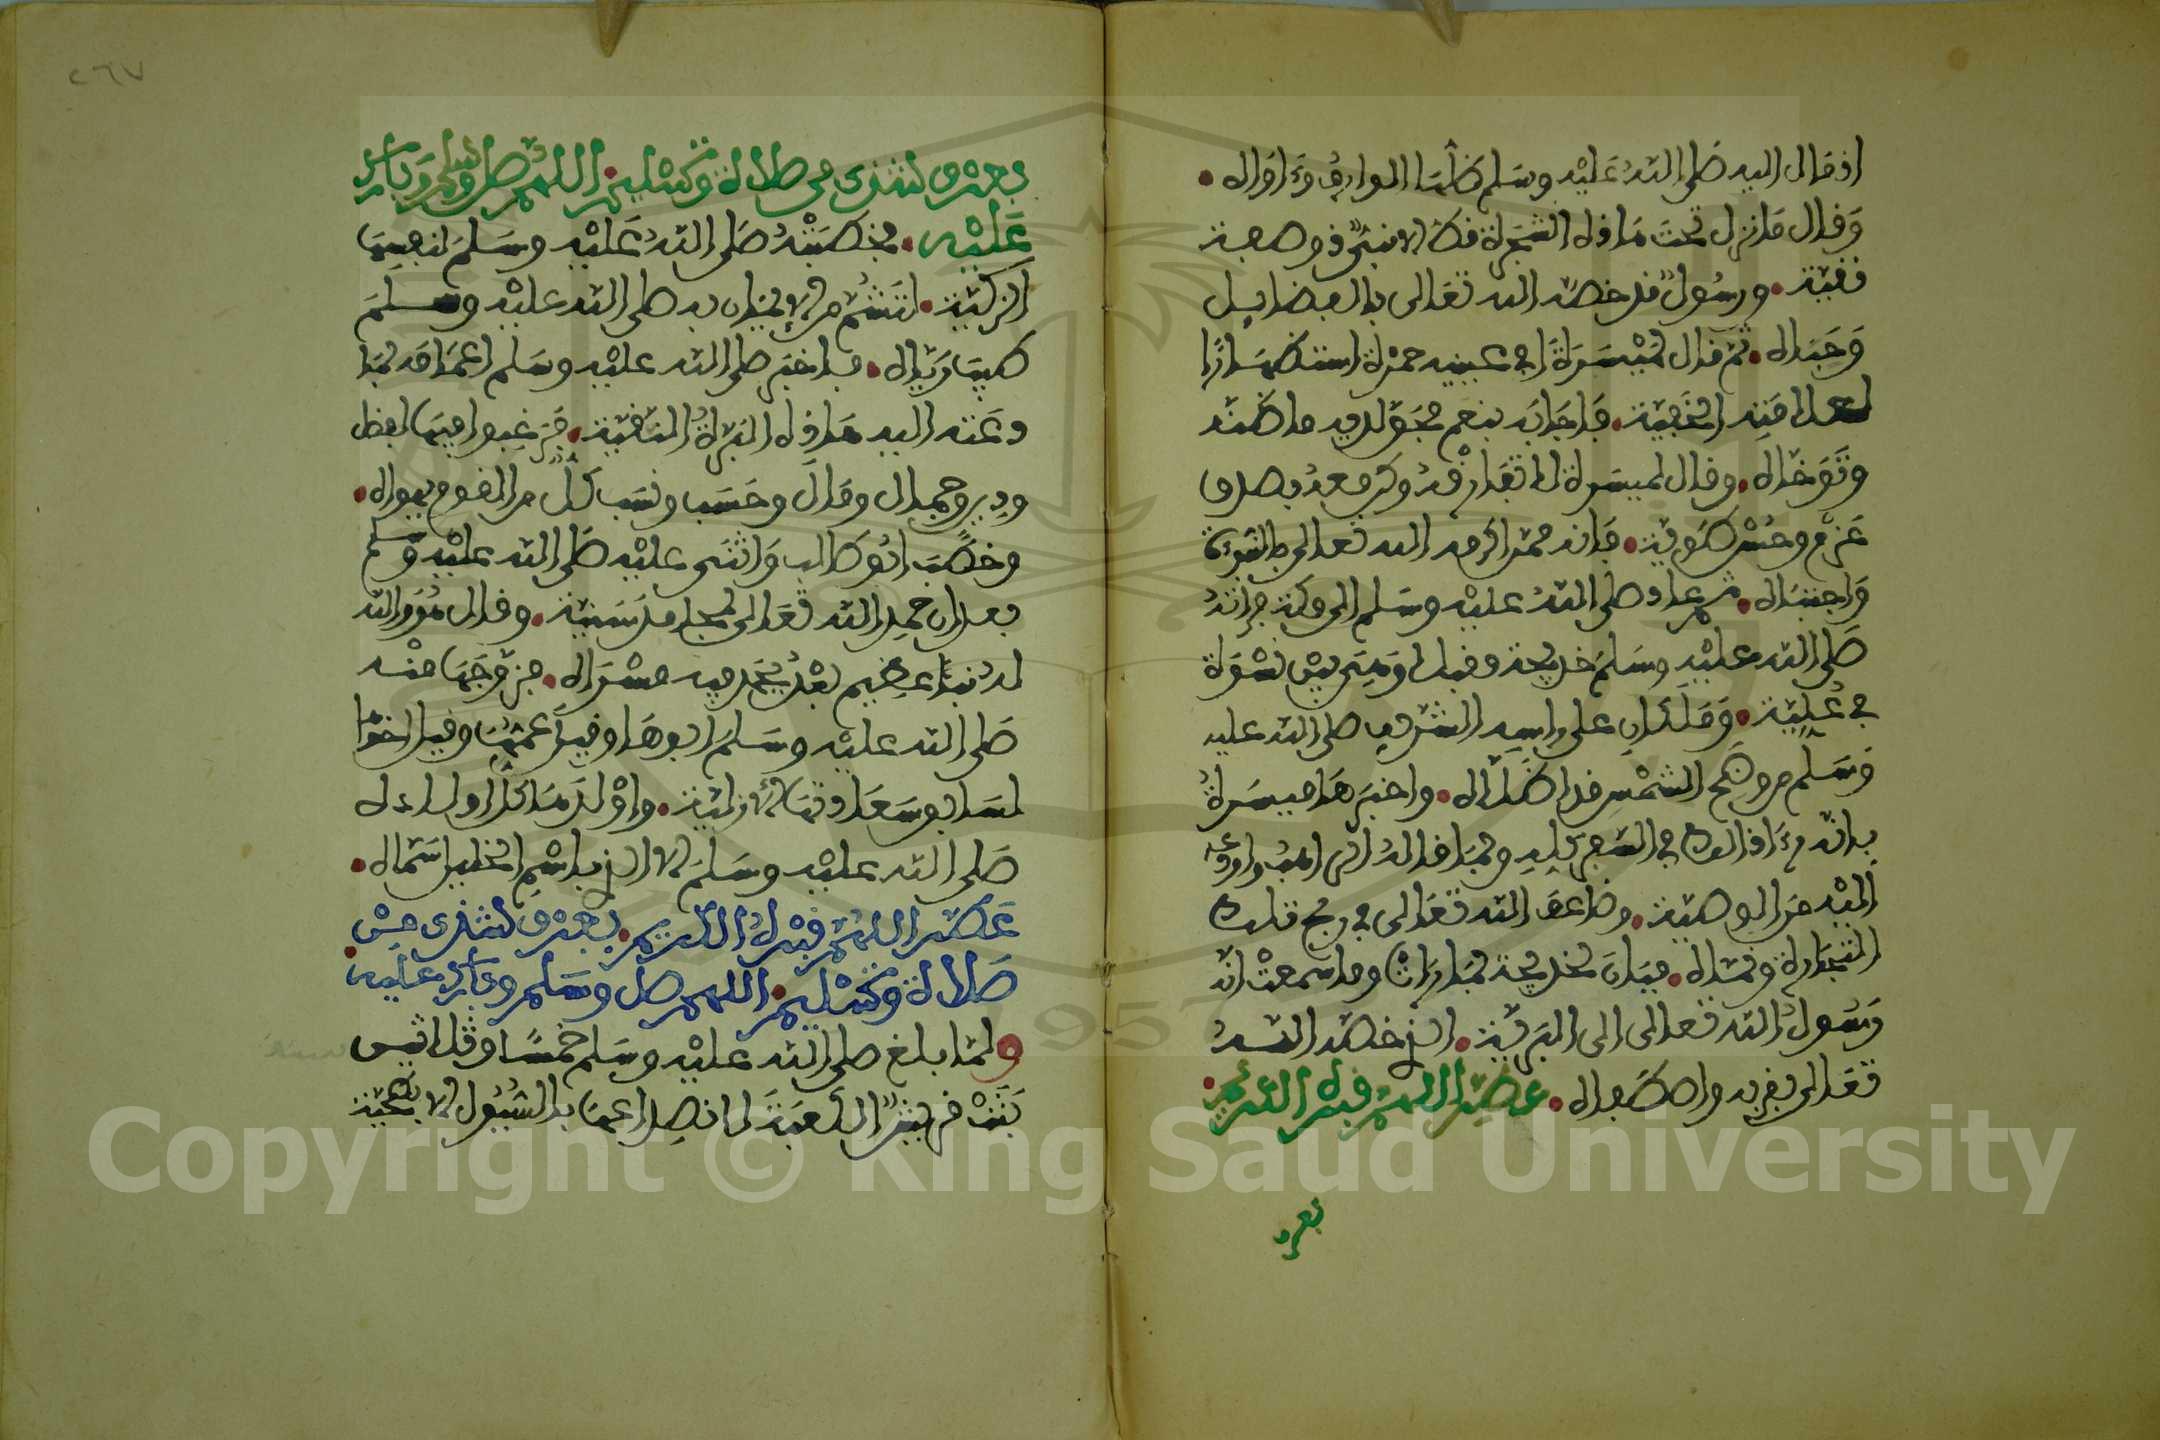 اذ مال اليه صلى الله عليه وسلم ظلها الوارف وءاواه
وقال ما نزل تحت هاذه الشجرة قط الا نبيء ذو صفة
نقية ورسول قد خصه الله تعالى بالفضايل
وحباه ثم قال لميسرة افي عينيه حمرة استظهارا
للعلامة الخفية فاجابه بنعم فحق لديه ما ظنه
وتوخاه وقال لميسرة لا تفارقه وكن معه بصدق
عزم وحسن طوية فانه ممن اكرمه الله تعالى بالنبوءة
واجتباه ثم عاد صلى الله عليه وسلم الى مكة فراته
صلى الله عليه وسلم خديجة مقبلا وهي بين نسوة
في علية وملكان على راسه الشريف صلى الله عليه
وسلم من وهج الشمس قد اظلاه واخبرها ميسرة
بانه رءا ذالك في السفر كله وبما قاله الراهب واودعه
اليه من الوصية وضاعف الله تعالى في ربح تلك
التجارة ونماه فبان لخديجة بما رات وما سمعت انه
رسول الله تعالى الى البرية الذي خصه الله
تعالى بقربه واصطفاه عطر اللهم قبره الكريم
بعرف
بعرف شذي من صلاة وتسليم اللهم صل وسلم وبارك
عليه فخطبته صلى الله عليه وسلم لنفسها
الزكية لتشم من الايمان به صلى الله عليه وسلم
طيب رياه فاخبر صلى الله عليه وسلم اعمامه بما
دعته اليه هاذه البرة التقية فرغبوا فيها لفضل
ودين وجمال ومال وحسب ونسب كل من القوم يهواه
وخطب ابو طالب واثنى عليه صلى الله عليه وسلم
بعد ان حمد الله تعالى بمحامد سنية وقال هو والله
له نبأ عظيم بعد يحمد فيه مسراه فزوجها منه
صلى الله عليه وسلم ابوها وقيل عمها وقيل اخوها
لسابق سعادتها الازلية واولدها كل اولاده
صلى الله عليه وسلم الا الذي باسم الخليل سماه
عطر اللهم قبره الكريم بعرف شذي من
صلاة وتسليم اللهم صل وسلم وبارك عليه
ولما بلغ صلى الله عليه وسلم خمسا وثلاثين سنة
بنت قريش الكعبة لانصداعها بالسيول الابطحية
٢٦٧